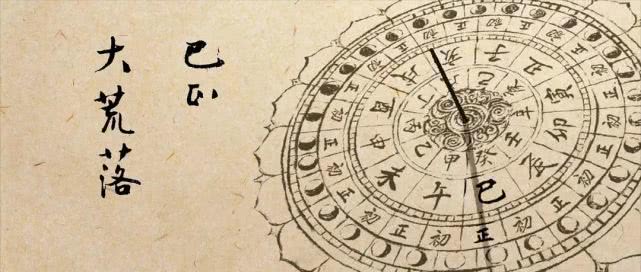 巳正
大荒落
子丑寅卯辰巳午未申酉戌亥
初正初正初正初正初正初正初正初正初正初正初正初正
己壬癸甲乙